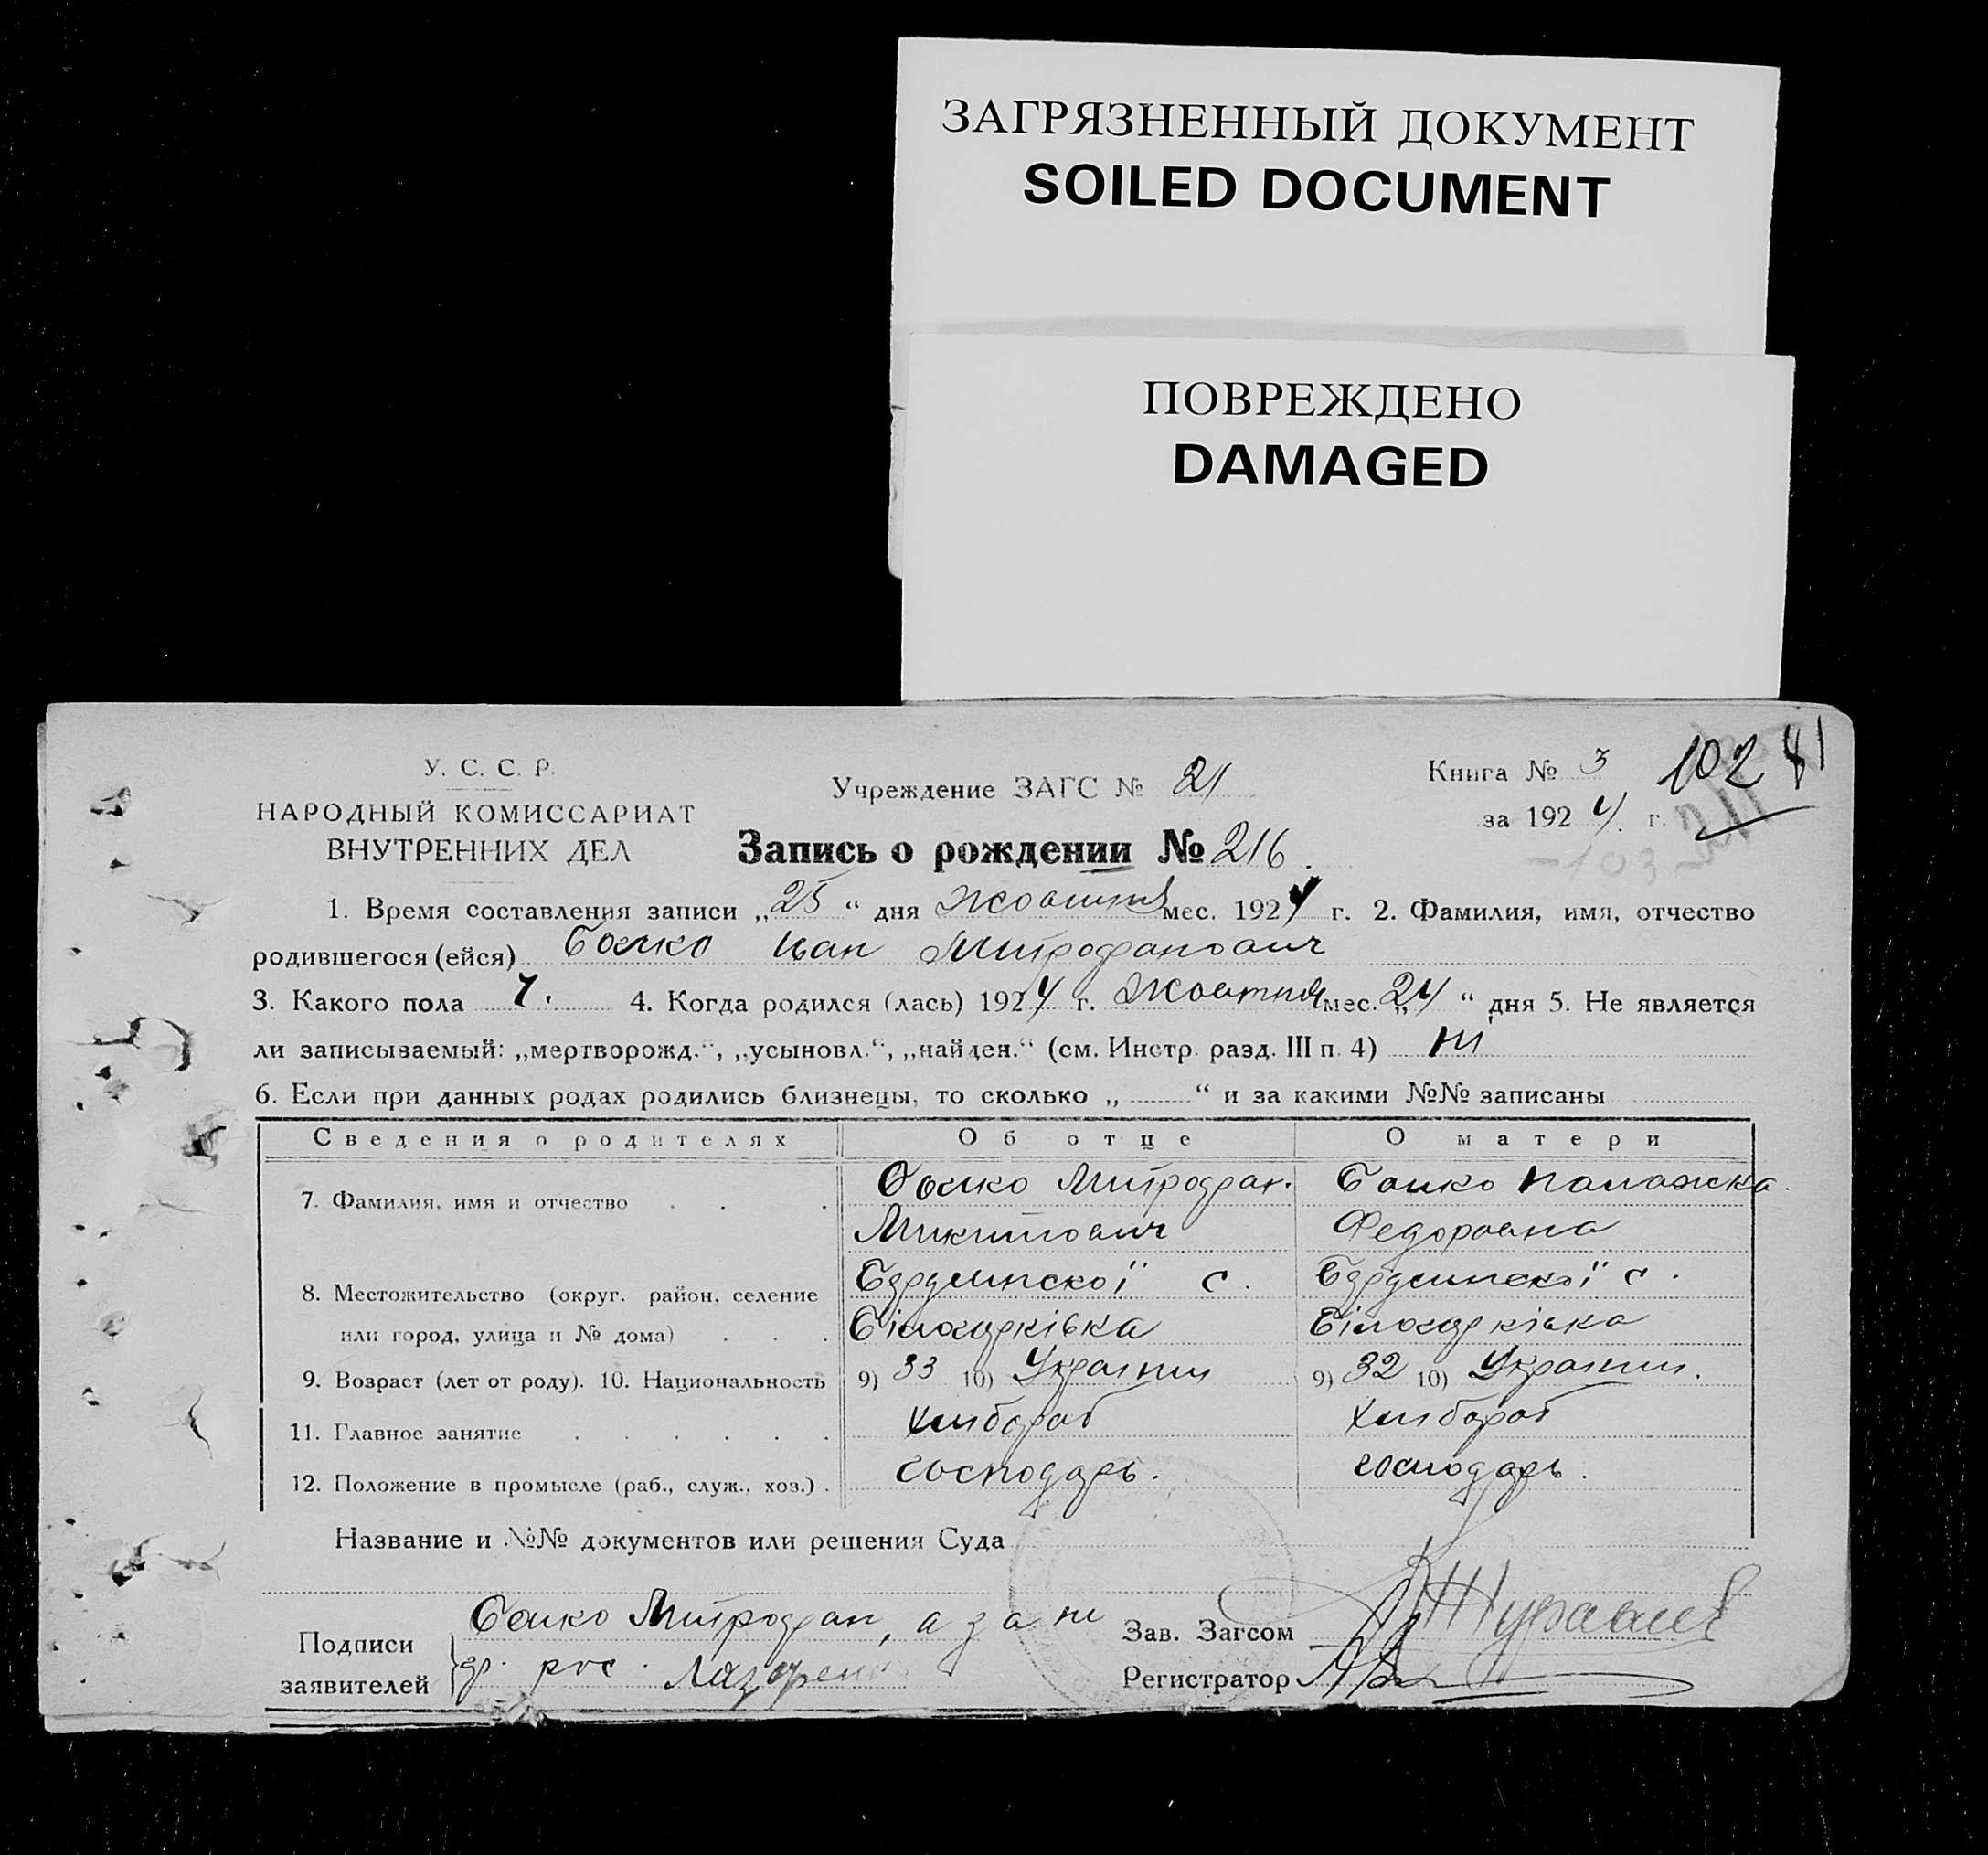 ЗАГРЯЗНЕННЫЙ ДОКУМЕНТ
SOILED DOCUMENT
ПОВРЕЖДЕНО
DAMAGED
У. С. С. Р.
НАРОДНЫЙ КОМИССАРИАТ
ВНУТРЕННИХ ДЕЛ
Учреждение ЗАГС № 21
Книга № 3
102
за 1924 г.
Запись о рождении № 216
1. Время составления записи „25“ дня Жовтня мес. 1924 г. 2. Фамилия, имя, отчество
родившегося (ейся) Бойко Іван Митрофанович
3. Какого пола Ч. 4. Когда родился (лась) 1924 г. Жовтня мес. „24“ дня 5. Не является
ли записываемый: „мертворожд.“, „усыновл.“, „найден.“ (см. Инстр. разд. III п. 4) ні
6. Если при данных родах родились близнецы, то сколько „ “ и за какими №№ записаны
Сведения о родителях Об отце О матери
7. Фамилия, имя и отчество Бойко Митрофан. Бойко Палажка
Микитович Федоровна
8. Местожительство (округ, район, селение с. с.
или город, улица и № дома)
9. Возраст (лет от роду). 10. Национальность 9) 33 10) Украiнц 9) 32 10) Украiнц.
11. Главное занятие хлібороб хлібороб
12. Положение в промысле (раб., служ., хоз.) господарь. господарь.
Название и №№ документов или решения Суда
Подписи
заявителей
Бойко Митрофан, а за
Зав. Загсом
Регистратор